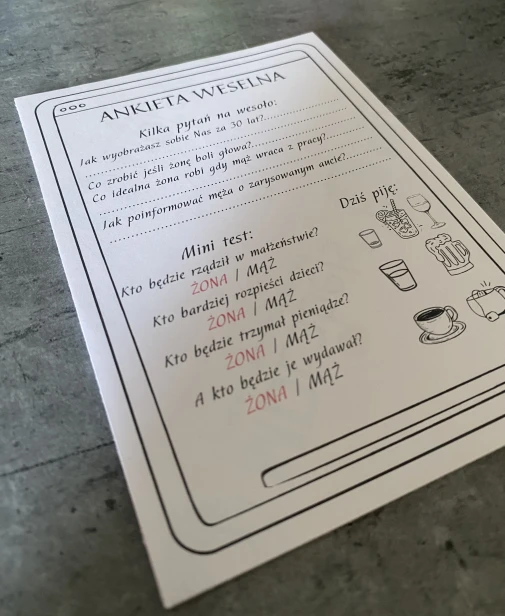 ANKIETA WESELNA
Kilka pytań na wesoło:
Jak wyobrażasz sobie Nas za 30 lat?
Co zrobić jeśli żonę boli głowa?
Co idealna żona robi gdy mąż wraca z pracy?
Jak poinformować męża o zarysowanym aucie?
Dziś piję:
Mini test:
Kto będzie rządził w małżeństwie?
ŻONA / MĄŻ
Kto bardziej rozpieści dzieci?
ŻONA / MĄŻ
Kto będzie trzymał pieniądze?
ŻONA / MĄŻ
A kto będzie je wydawał?
ŻONA / MĄŻ